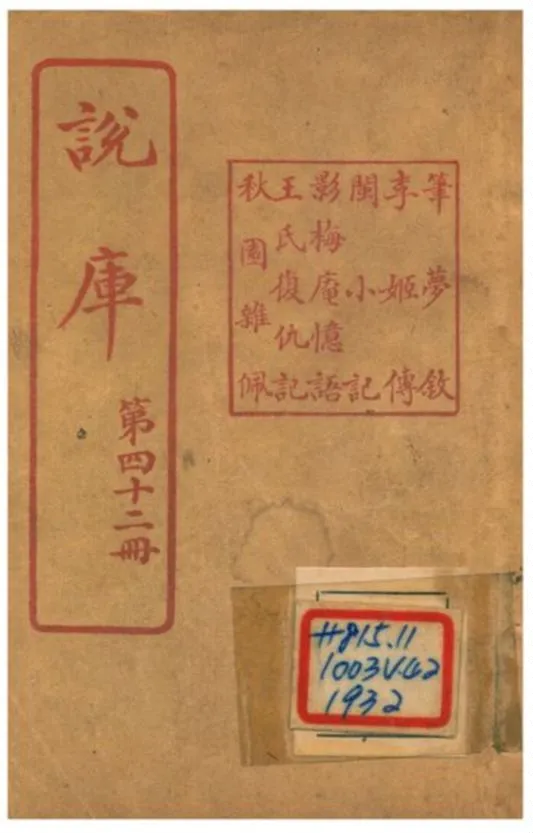 說庫
第四十二冊
筆夢敘
李姬傳
閩小記
影梅庵憶語
王氏復仇記
秋園雜佩
H815.11
1003V.42
1932